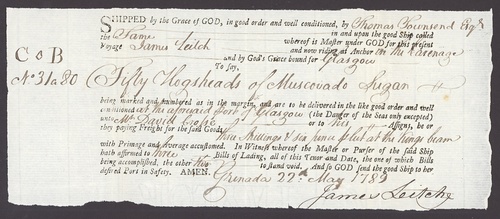 SHIPPED by the Grace of GOD, in good order and well conditioned, by Thomas Townsend Esqr
in and upon the good Ship called
the Fame whereof is Master under GOD for this present
Voyage James Leitch and now riding at Anchor in the Carenage
and by God's Grace bound for Glasgow
C o B
No 31 a 80
To say,
Fifty Hogsheads of Muscovado Sugar
being marked and numbered as in the margin, and are to be delivered in the like good order and well
conditioned at the aforesaid Port of Glasgow (the Danger of the Seas only excepted)
unto Mr David or to his Assigns, he or
they paying Freight for the said Goods, three shillings & six pence lb at the Kings beam
with Primage and average accustomed. In Witness whereof the Master or Purser of the said Ship
hath affirmed to three Bills of Lading, all of this Tenor and Date, the one of which Bills
being accomplished, the other two to stand void. And so GOD send the good Ship to her
desired Port in Safety. AMEN. Grenada 22d May 1789
James Leitch